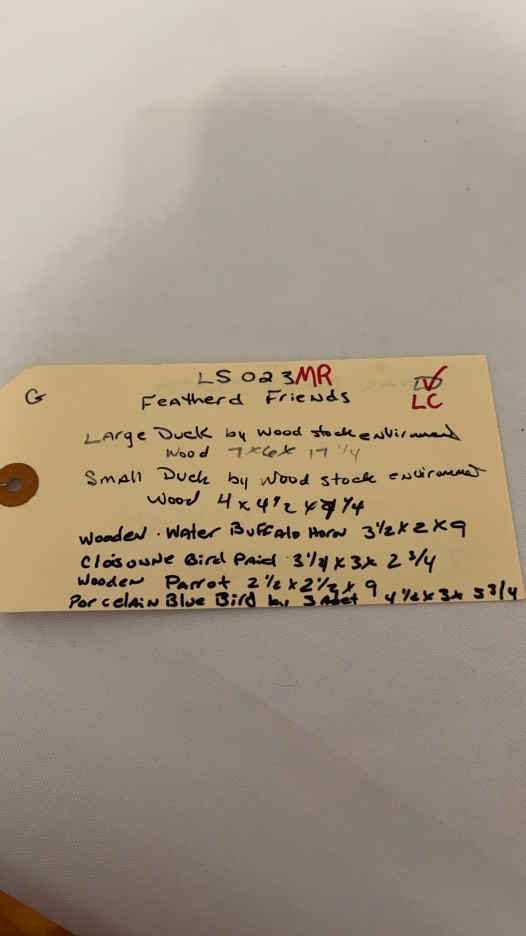 G
LS 023 MR
LC
Featherd Friends
Large Duck by Wood stock envirnment
Wood 7x6x 17 1/4
Small Duck by Wood stock envirnment
Wood 4 x 4 1/2 x 1/4
Wooden . Water Buffalo Horn 3 1/2 x 2 x 9
Cloisonne Bird Paid 3 1/4 x 3 x 2 3/4
Wooden Parrot 2 1/2 x 2 1/2 x 9
Porcelain Blue Bird by 4 1/2 x 3 x 3 3/4